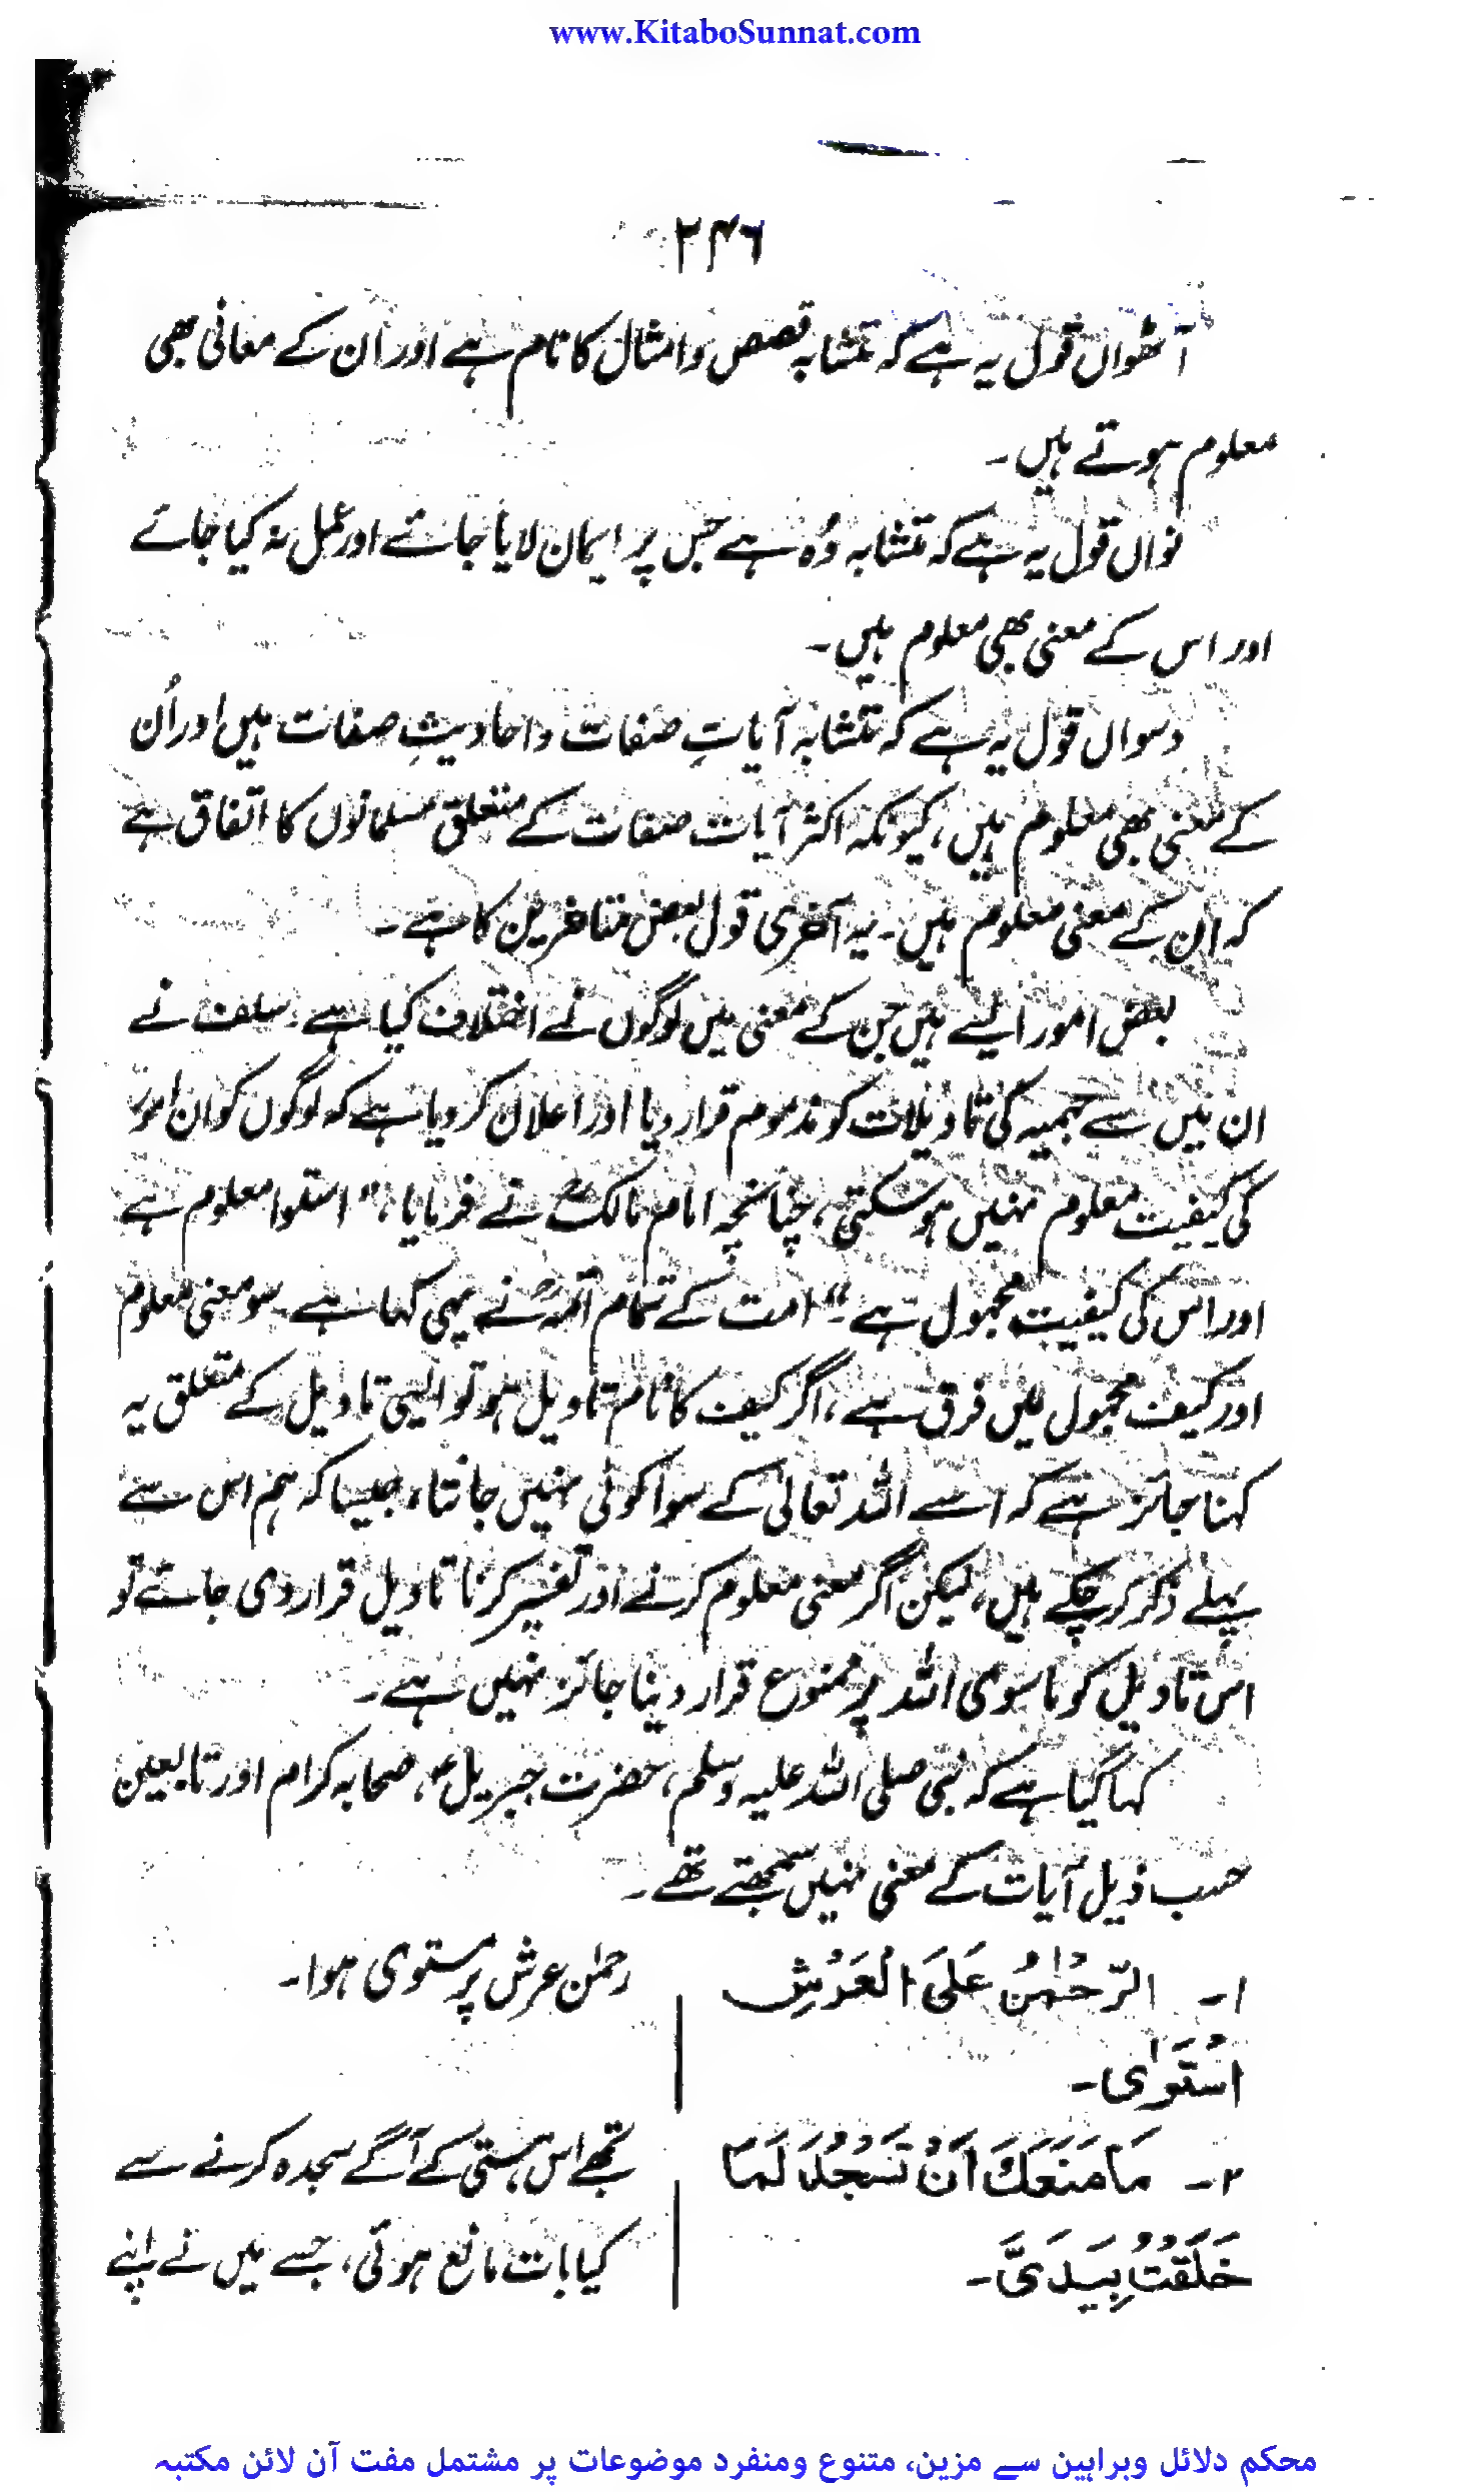 www.KitaboSunnat.com
۲۴۶
آٹھواں قول یہ ہے کہ متشابہ قصص و امثال کا نام ہے اور ان کے معانی بھی
معلوم ہوتے ہیں۔
نواں قول یہ ہے کہ متشابہ وُہ ہے جس پر ایمان لایا جائے اور عمل نہ کیا جائے
اور اس کے معنی بھی معلوم ہیں۔
دسواں قول یہ ہے کہ متشابہ آیاتِ صفات و احادیثِ صفات ہیں اور اُن
کے معنی بھی معلوم ہیں، کیونکہ اکثر آیات صفات کے متعلق مسلمانوں کا اتفاق ہے
کہ ان کے معنی معلوم ہیں۔ یہ آخری قول بعض متاخرین کا ہے۔
بعض امور ایسے ہیں جن کے معنی میں لوگوں نے اختلاف کیا ہے۔ سلف نے
ان میں سے جہمیہ کی تاویلات کو مذموم قرار دیا اور اعلان کر دیا ہے کہ لوگوں کو ان امور
کی کیفیت معلوم نہیں ہو سکتی، چنانچہ امام مالکؒ نے فرمایا، "استوا معلوم ہے
اور اس کی کیفیت مجہول ہے۔" امت کے تمام ائمہؒ نے یہی کہا ہے۔ سو معنی معلوم
اور کیف مجہول میں فرق ہے، اگر کیف کا نام تاویل ہو تو ایسی تاویل کے متعلق یہ
کہنا جائز ہے کہ اسے اللہ تعالیٰ کے سوا کوئی نہیں جانتا، جیسا کہ ہم اس سے
پہلے ذکر کر چکے ہیں، لیکن اگر معنی معلوم کرنے اور تفسیر کرنا تاویل قرار دی جائے تو
اس تاویل کو ماسوی اللہ پر ممنوع قرار دینا جائز نہیں ہے۔
کہا گیا ہے کہ نبی صلی اللہ علیہ وسلم، حضرت جبریلؑ، صحابہ کرام اور تابعین
حسب ذیل آیات کے معنی نہیں سمجھتے تھے۔
۱۔ الرَّحْمٰنُ عَلَی الْعَرْشِ
اسْتَوٰی۔
رحمٰن عرش پر مستوی ہوا۔
۲۔ مَا مَنَعَكَ اَنْ تَسْجُدَ لَمَا
خَلَقْتُ بِیَدَیَّ۔
تجھے اس ہستی کے آگے سجدہ کرنے سے
کیا بات مانع ہوئی، جسے میں نے اپنے
محکم دلائل وبراہین سے مزین، متنوع ومنفرد موضوعات پر مشتمل مفت آن لائن مکتبہ